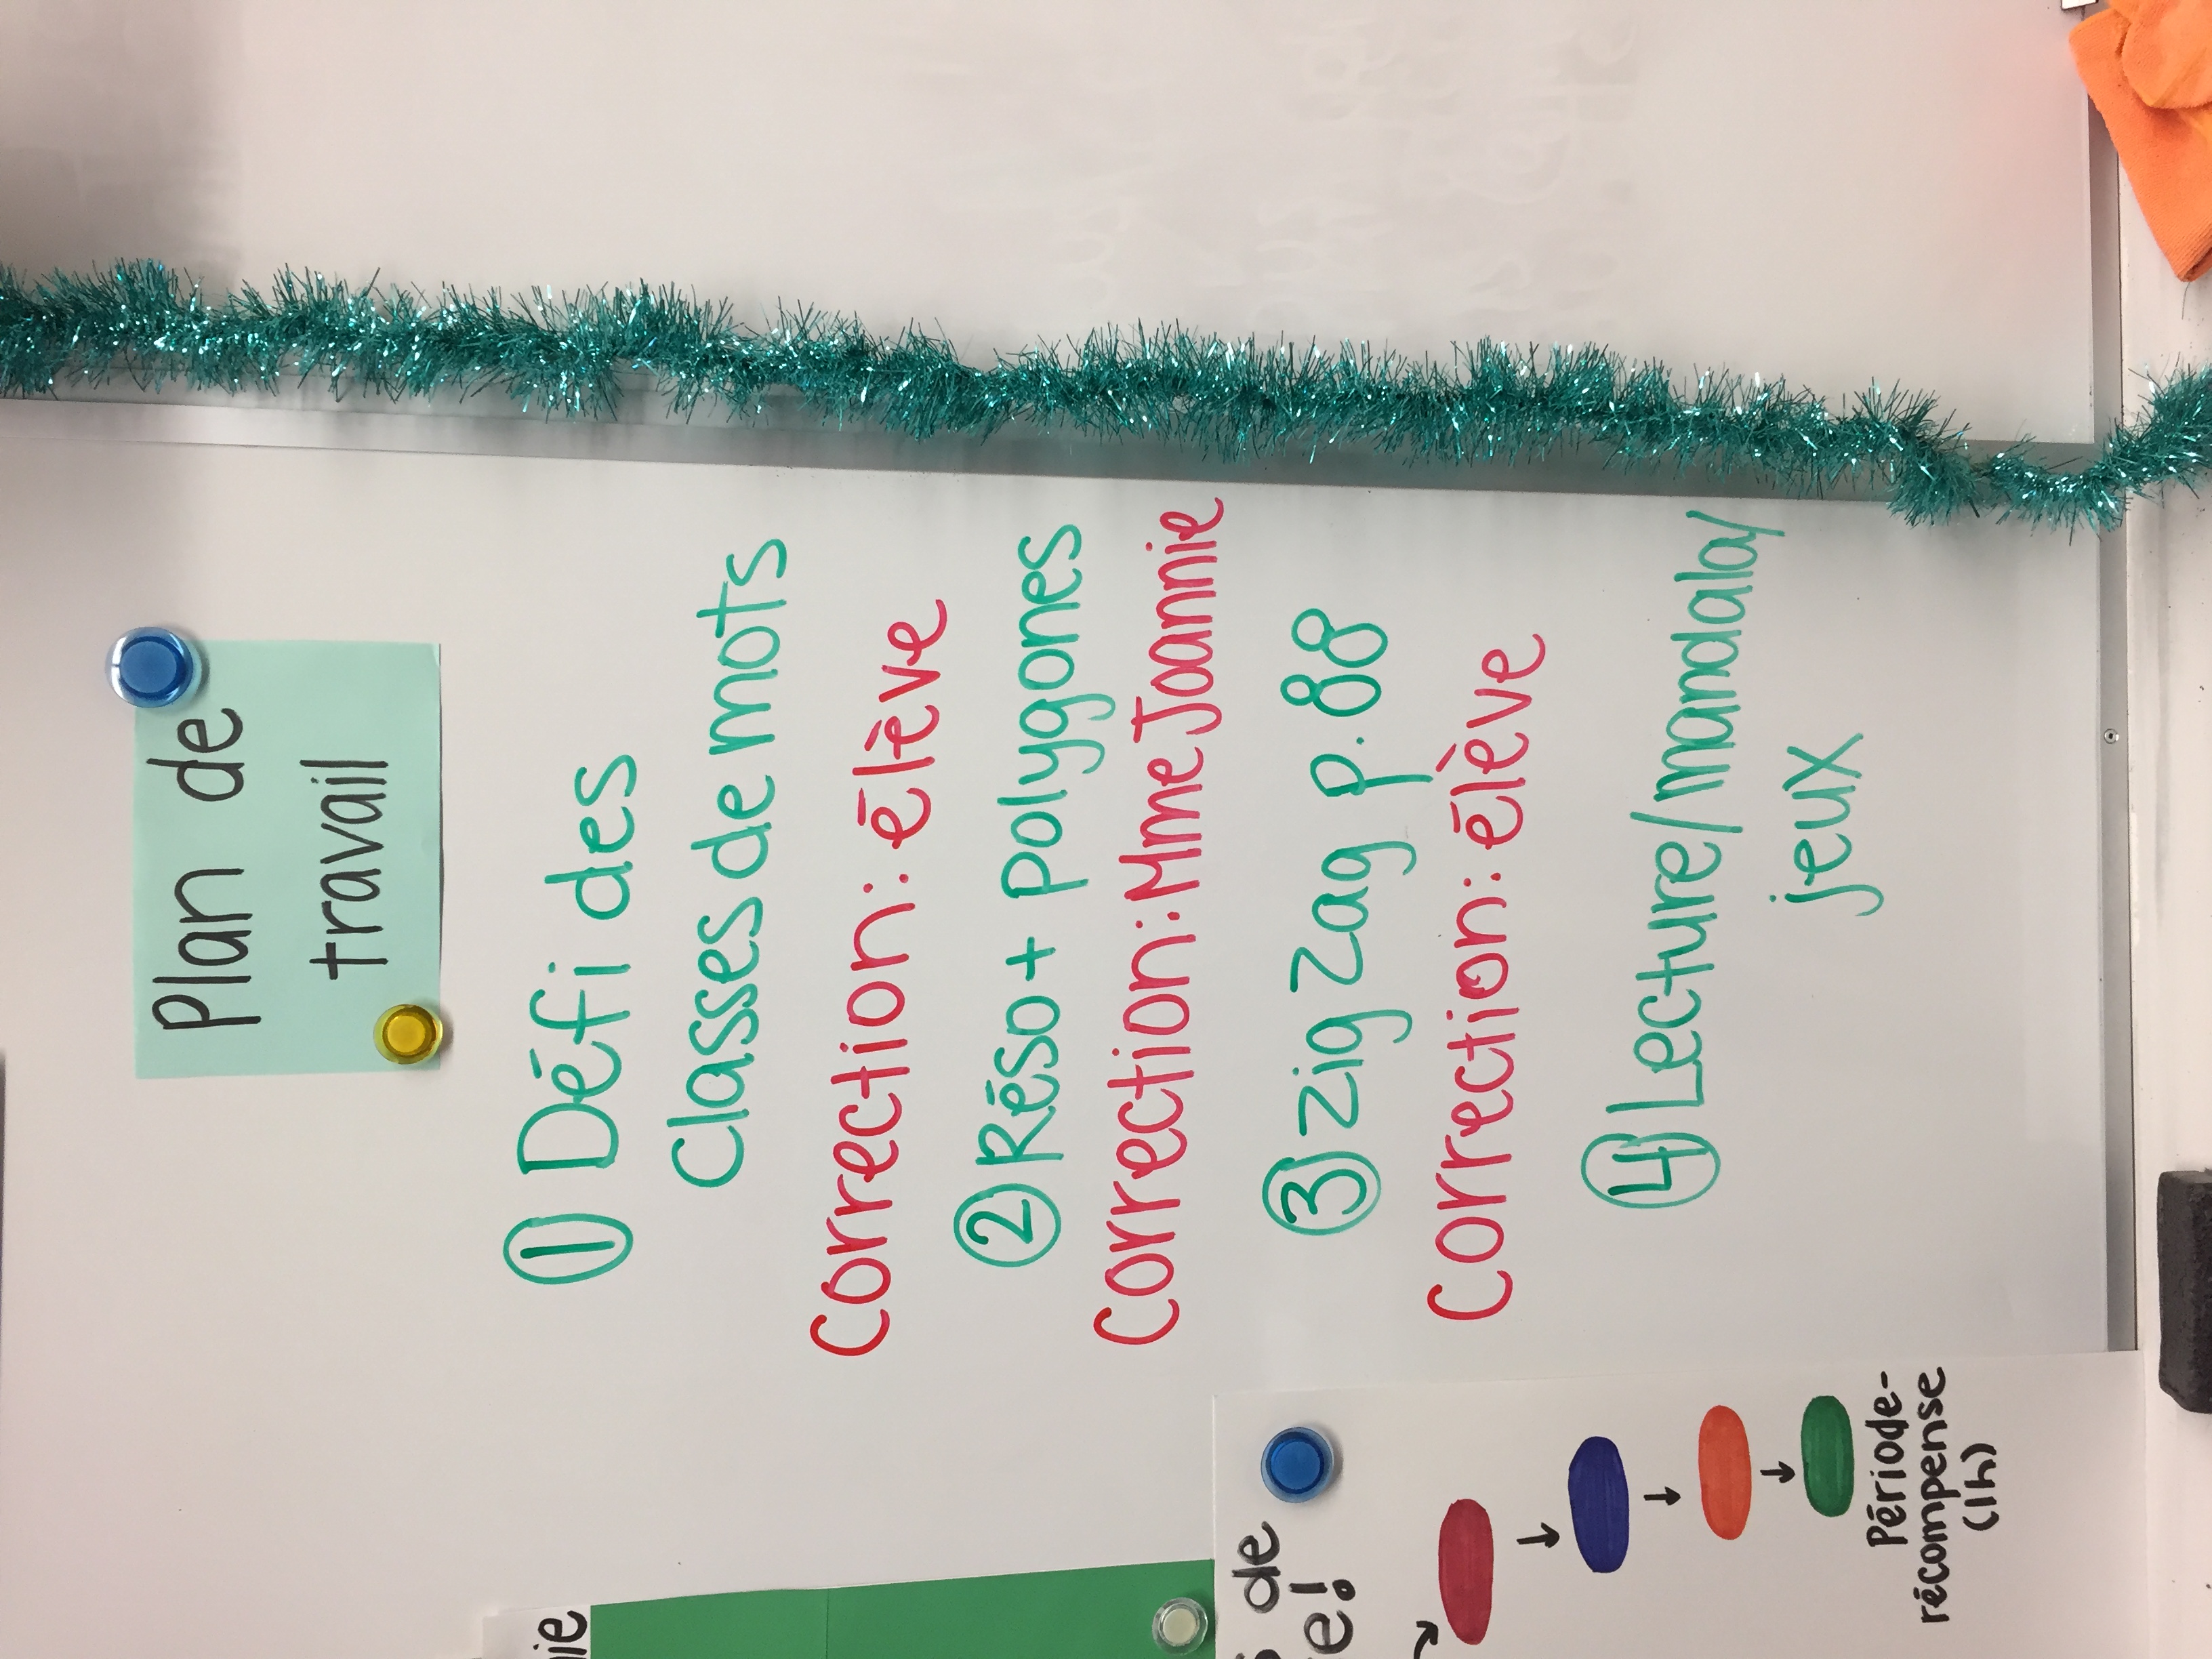 Plan de
travail
1 Défi des
Classes de mots
Correction: élève
2 Réso + polygones
Correction: Mme Joannie
3 zig zag p. 88
Correction: élève
4 Lecture/mandala/
jeux
de
Période-
récompense
(1h)